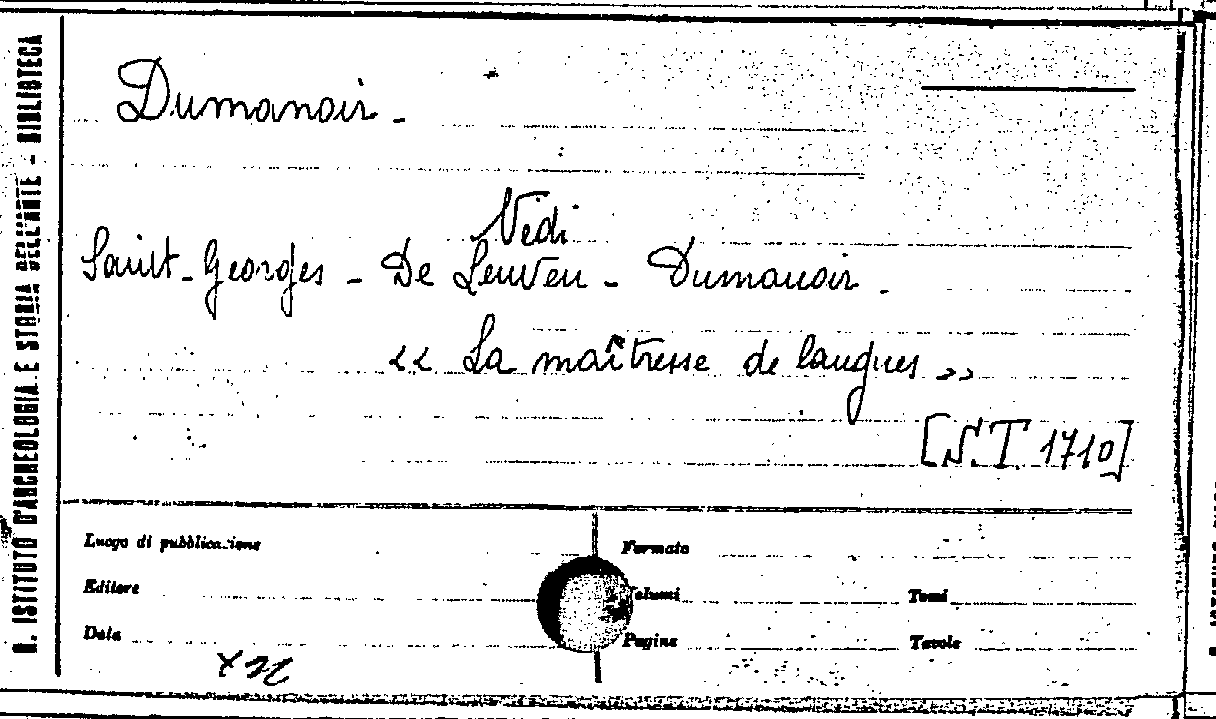 R. ISTITUTO D'ARCHEOLOGIA E STORIA DELL'ARTE - BIBLIOTECA
Dumanoir -
Vedi
Saint-Georges - De Leuven - Dumanoir -
<< La maîtresse de langues >>
[S.T. 1710]
Luogo di pubblicazione
Formato
Editore
Volumi
Tomi
Data
Pagine
Tavole